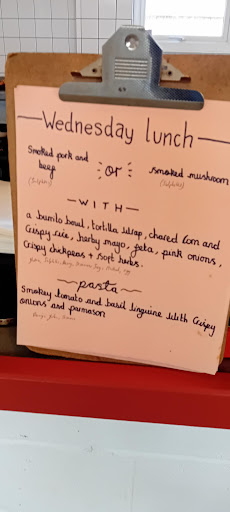 Wednesday lunch
Smoked pork and
beef
or
smoked mushroom
(Sulphites)
(Sulphites)
WITH
a burrito bowl, tortilla wrap, chared corn and
crispy rice, herby mayo, feta, pink onions,
Crispy chickpeas + soft herbs.
pasta
Smokey tomato and basil linguine with crispy
onions and parmason